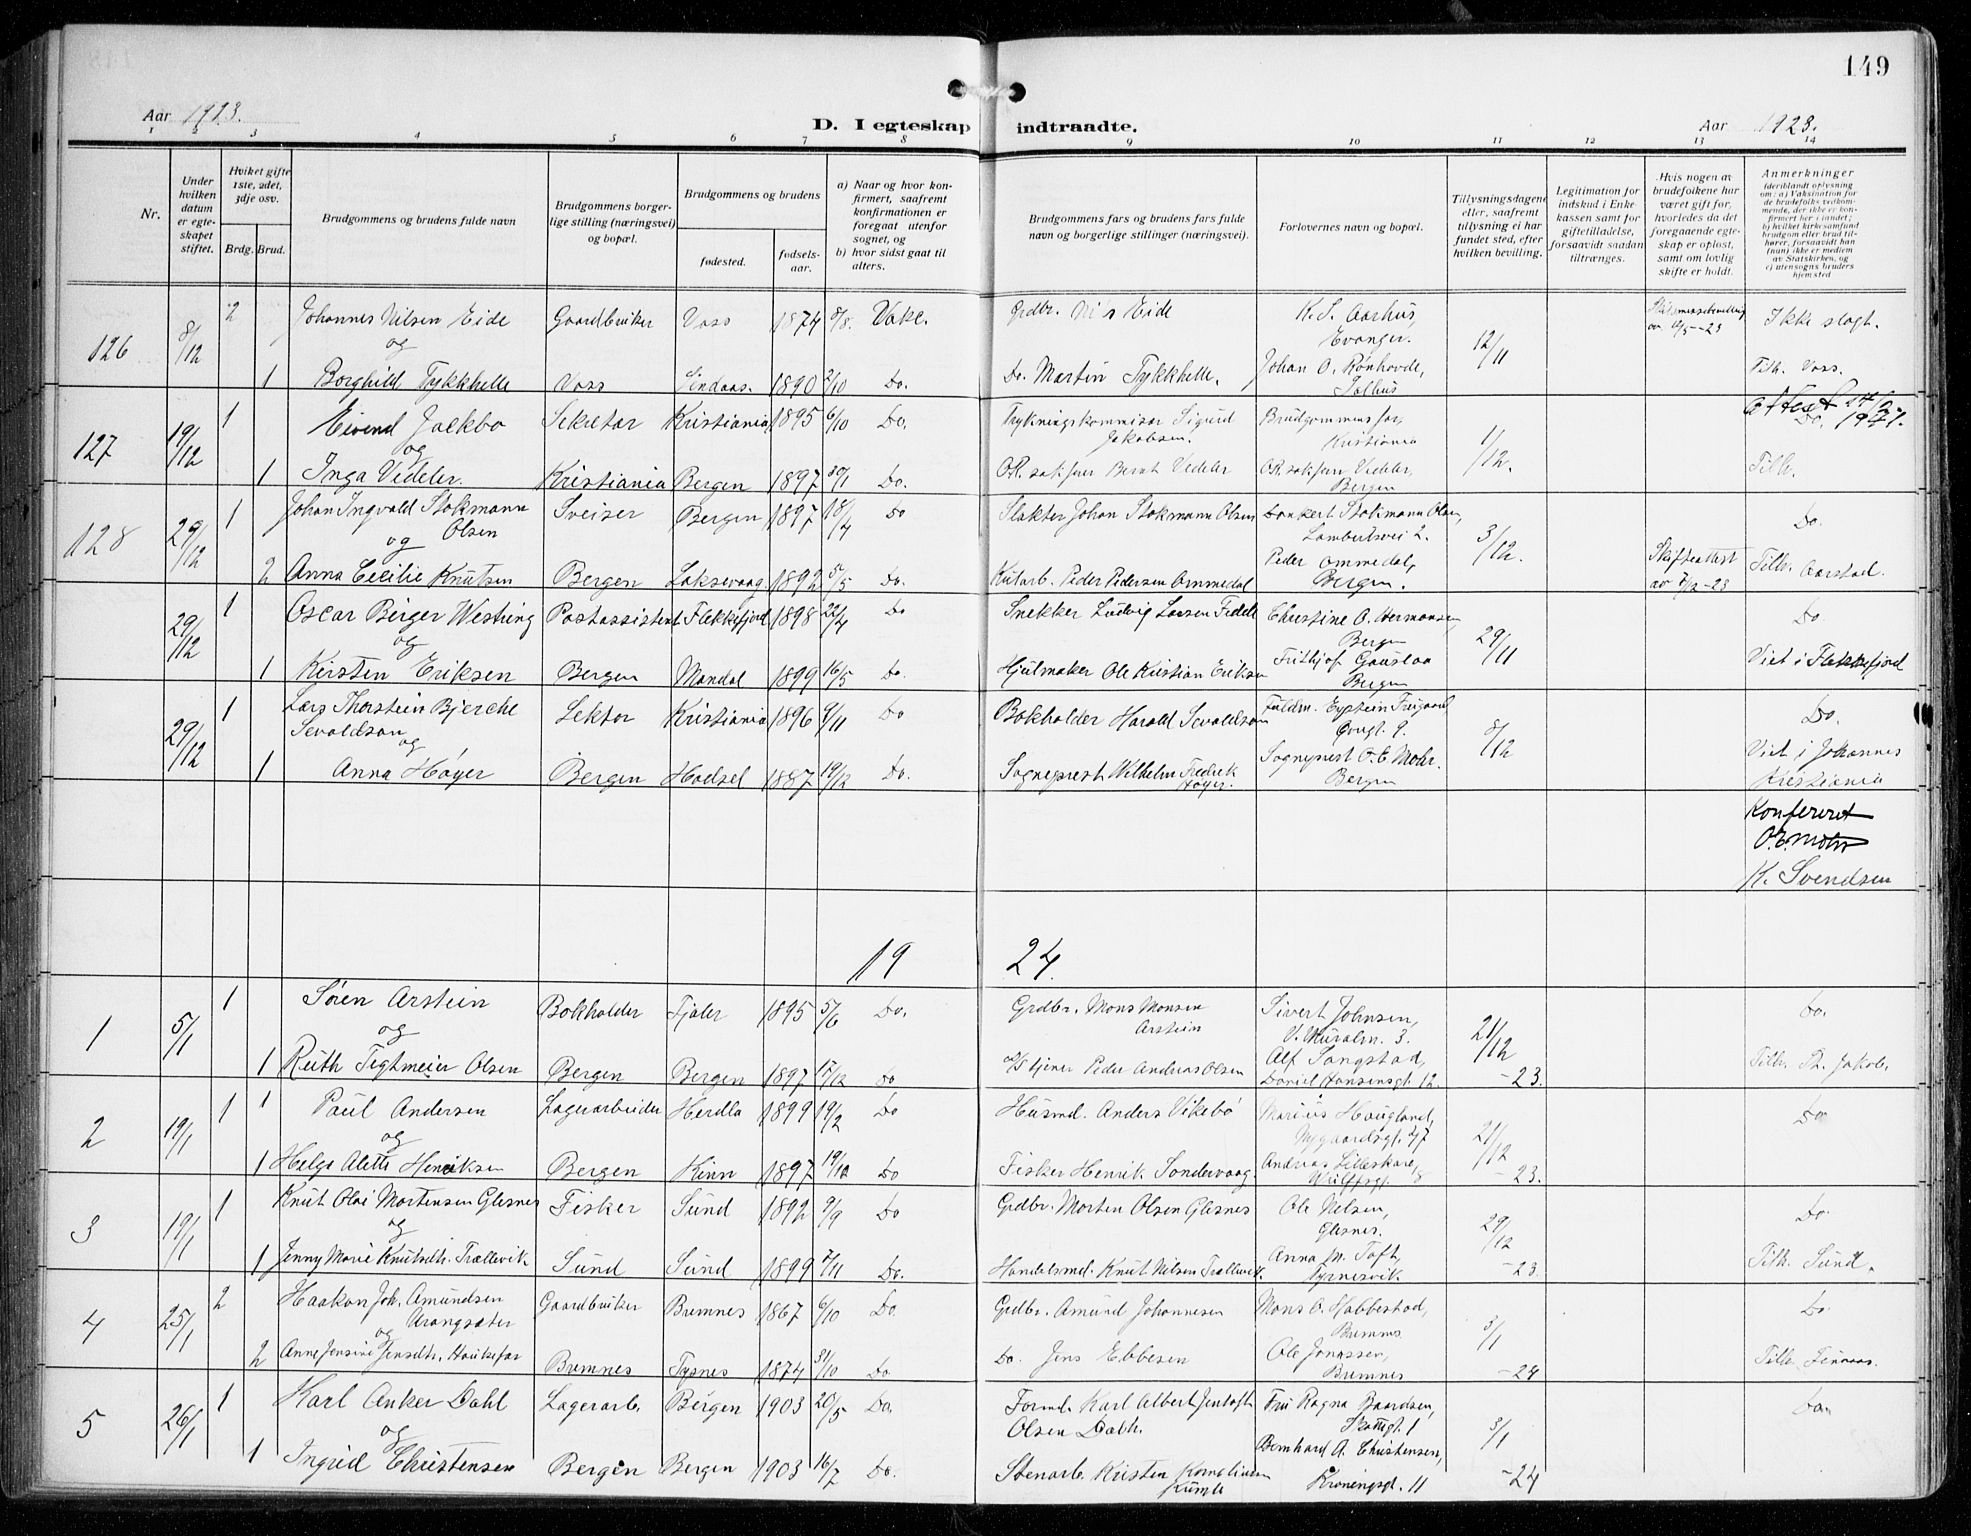 149
Aar 1923.
D. I egteskap indtraadte.
Aar 1923.
1 2 3 4 5 6 7 8 9 10 11 12 13 14
Nr.
Under hvilken datum er egteskapet stiftet.
Hvilket gifte 1ste, 2det, 3dje osv.
Brdg. Brud.
Brudgommens og brudens fulde navn
Brudgommens borgerlige stilling (næringsvei) og bopæl.
Brudgommens og brudens
fødested.
fødselsaar.
a) Naar og hvor konfirmert, saafremt konfirmationen er foregaat utenfor sognet, og
b) hvor sidst gaat til alters.
Brudgommens fars og brudens fars fulde navn og borgerlige stillinger (næringsvei).
Forlovernes navn og bopæl.
Tillysningsdagene eller, saafremt tillysning ei har fundet sted, efter hvilken bevilling.
Legitimation for indskud i Enkekassen samt for giftetilladelse, forsaavidt saadan tiltrænges.
Hvis nogen av brudefolkene har været gift før, hvorledes da det foregaaende egteskap er opløst, samt om lovlig skifte er holdt.
Anmerkninger (deriblandt oplysning om: a) Vaksination for de brudefolks vedkommende, der ikke er konfirmert her i landet; b) hvilket kirkesamfund brudgom eller brud tilhører, forsaavidt han (hun) ikke er medlem av Statskirken, og c) utensogns bruders hjemsted
126 8/12 2 Johannes Nilsen Eide Gaardbruker Voss 1874 8/8. Vake. Grdbr. Eide K. S. Aarhus, Evanger. 12/11 Ikke slegt.
og
1 Borghild Tykkhelle Voss Lindaas. 1890 2/10 Do. Do. Martin Tykkhelle. Johan O. Rønhovde, Tilh. Voss.
127 19/12 1 Eivind Jackbo Sekretær Kristiania 1895 6/10 Do. Trykningskommisær Sigurd Jakobsen. Brudgommens far, Kristiania 1/12. Attest Do. 1947.
og
1 Inga Vedeler. Kristiania Bergen 1897 30/1 Do. O.R. sakfører Bernt Vedeler O.R. sakfører Vedeler, Bergen Tilh.
128 29/12 1 Johan Ingvald Stokmann Olsen Sveiser Bergen 1897 18/4 Do Slakter Johan Stokmann Olsen Dankert Stokmann Olsen, Lambertsvei 2. 3/12. Do.
og
2 Anna Cecilie Knutsen Bergen Laksevaag 1892 5/5 Do. Peder Pedersen Ommedal Peder Ommedal, Bergen. Skifteattest av -23 Tilh. Aarstad.
29/12 1 Oscar Birger Westring Postassistent Flekkefjord 1898 22/4 Do Snekker Ludvig Larsen Fedde Christine O. Hermansen, Bergen 29/11 Do.
og
1 Kirsten Eriksen Bergen Mandal 1899 16/5 Do. Hjulmaker Ole Kristian Eriksen Fritjhof Gauslaa Bergen Viet i Flekkefjord
29/12 1 Lars Thorstein Bjerche Sevaldson Lektor Kristiania 1896 9/11 Do Bokholder Harald Sevaldson Fuldm. Eystein 8/12 Do.
og
1 Anna Høyer Bergen Hadsel 1887 19/12 Do. Sogneprest Wilhelm Fredrik Høyer. Sogneprest O. E. Mohr. Bergen Viet i Johannes Kristiania
Konfereret
O. E. Mohr
K. Svendsen
19 24.
1 5/1 1 Søren Arstein Bokholder Fjaler 1895 5/6 Do. Grdbr. Mons Monsen Arstein Sivert Johnsen, V. Muralm. 3. 21/12 -23. Do.
og
1 Ruth Tigtmeier Olsen Bergen Bergen 1897 17/12 Do Peder Andreas Olsen Alf Sangstad, Daniel Hansensgt. 12. Tilh. St. Jakob.
2 19/1 1 1 Paul Andersen Lagerarbeider Herdla 1899 19/2 Do Husmd. Anders Vikebø Marius Haugland, Nygaardsgt. 47 21/12 -23. Do
og
1 Helge Alette Henriksen Bergen Kinn 1897 19/10 Do Fisker Henrik Søndervaag. Andreas Lilleskare,
3 19/1 1 Knut Olai Mortensen Glesnes Fisker Sund 1892 9/9 Do Grdbr. Morten Olsen Glesnes Ole Nilsen, Glesnes. 29/12 -23. Do
og
1 Jenny Marie Knutsdtr. Trællevik Sund Sund 1899 7/11 Do. Handelsmd. Knut Nilsen Trællevik. Anna M. Toft, Tyrnesvik Tilh. Sund.
4 25/1 2 Haakon Joh. Amundsen Gaardbruker Bremnes 1867 6/10 Do. Grdbr. Amund Johannesen Mons O. Habbestad, Bremnes 3/1 -24 Do
og
2 Anne Jensine Jensdtr. Bremnes Tysnes 1874 31/10 Do. Do. Jens Ebbesen Ole Jonassen, Bremnes Tilh. Finnaas.
5 26/1 1 Karl Anker Dahl Lagerarb. Bergen 1903 20/5 Do. Formd. Karl Albert Jentoft Olsen Dahl. Fru Ragna Baardsen, Skottegt. 1 3/1 -24 Do.
og
1 Ingrid Christensen Bergen Bergen 1903 16/7 Do. Stenarb. Kristen Kornelius Bernhard A. Christensen, Kroningsgt. 11